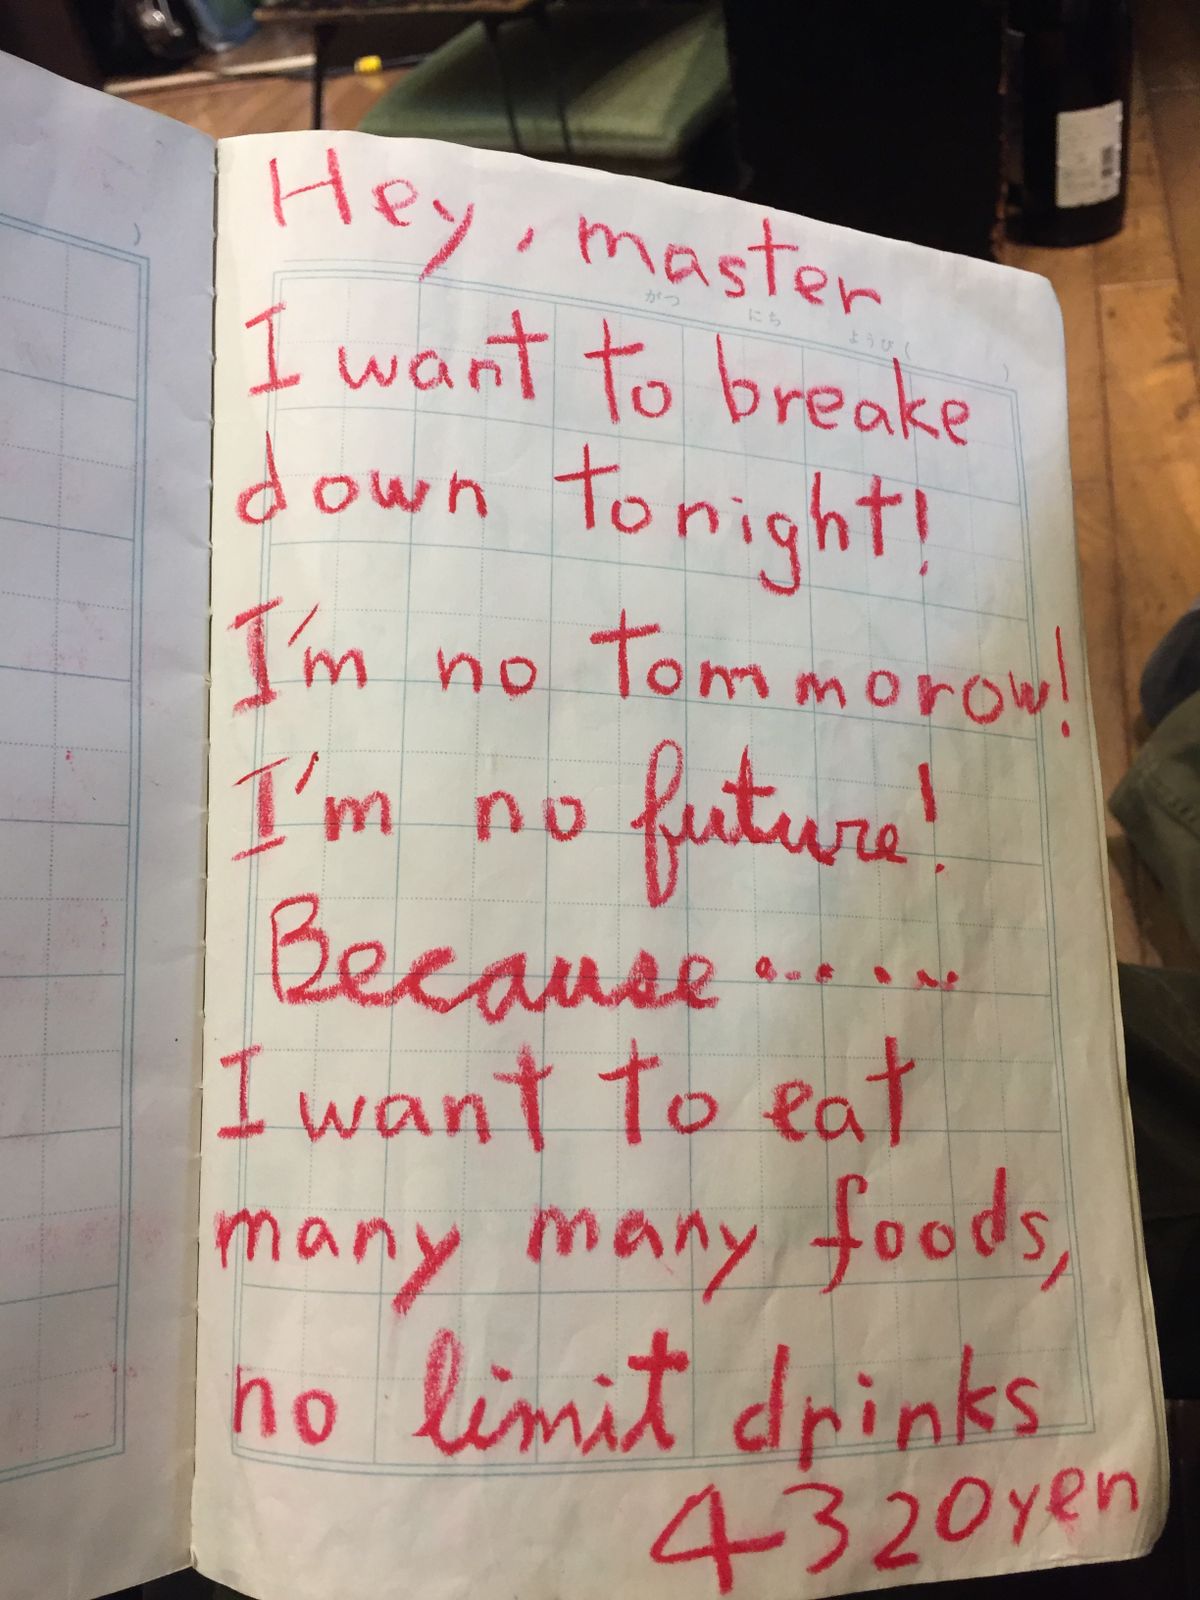 Hey, master
がつ にち ようび( )
I want to breake
down tonight!
I'm no tommorow!
I'm no future!
Because......
I want to eat
many many foods,
no limit drinks
4320yen